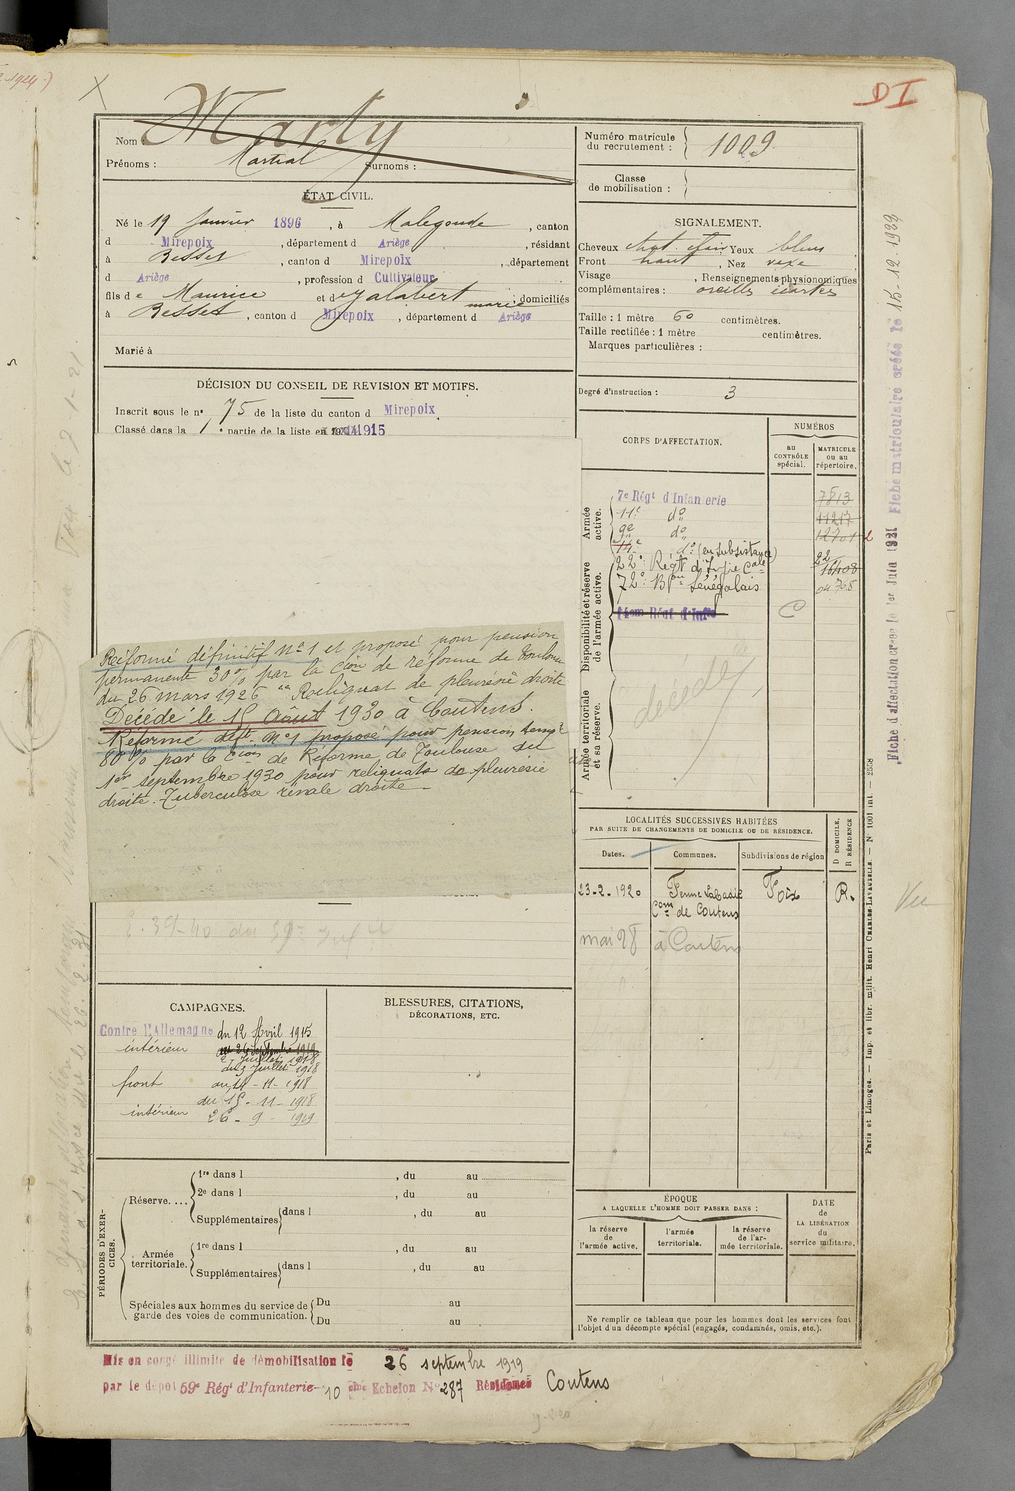 DI
Nom Marty
Prénoms : Martial Surnoms :
ÉTAT CIVIL.
Né le 19 Janvier 1896, à Malegoude, canton
d Mirepoix, département d Ariège, résidant
à Besset, canton d Mirepoix, département
d Ariège, profession d Cultivateur
fils de Maurice et de Jalabert marie, domiciliés
à Besset, canton d Mirepoix, département d Ariège
Marié à
DÉCISION DU CONSEIL DE REVISION ET MOTIFS.
Inscrit sous le nº 75 de la liste du canton d Mirepoix
Classé dans la 1 e partie de la liste en 1915
Réformé définitif Nº 1 et proposé pour pension
permanente 30% par la Cion de réforme de Toulouse
du 26 mars 1926 Reliquat de pleurésie droite
Décédé le 15 Août 1930 à Coutens.
Réformé déft. Nº 1 proposé pour pension tempre
80% par la Cion de Réforme de Toulouse du
1er septembre 1930 pour reliquats de pleurésie
droite. Tuberculose rénale droite
CAMPAGNES.
Contre l'Allemagne du 12 Avril 1915
intérieur au 26 septembre 1919
2 Juillet 1918
du 3 Juillet 1918
front au 14-11-1918
du 15-11-1918
intérieur 26-9-1919
BLESSURES, CITATIONS,
DÉCORATIONS, ETC.
PÉRIODES D'EXERCICES.
Réserve....
1re dans l , du au
2e dans l , du au
Supplémentaires dans l , du au
Armée territoriale.
1re dans l , du au
Supplémentaires dans l , du au
Spéciales aux hommes du service de garde des voies de communication.
Du au
Du au
Numéro matricule
du recrutement : 1009
Classe
de mobilisation :
SIGNALEMENT.
Cheveux chat clair Yeux bleus
Front haut, Nez vexe
Visage , Renseignements physionomiques
complémentaires : oreilles écartées
Taille : 1 mètre 60 centimètres.
Taille rectifiée : 1 mètre centimètres.
Marques particulières :
Degré d'instruction : 3
CORPS D'AFFECTATION.
NUMÉROS
au
CONTRÔLE
spécial.
MATRICULE
ou au
répertoire.
Armée
active.
7e Régt d'Infanterie 7813
11e do 11217
9e do 12701
14e do (en subsistance)
Disponibilité et réserve
de l'armée active.
22e Régt d'Infie Cale 22 16408
72e Bon Sénégalais 04.705
14eme Régt d'Infie C
Armée territoriale
et sa réserve.
décédé
LOCALITÉS SUCCESSIVES HABITÉES
PAR SUITE DE CHANGEMENTS DE DOMICILE OU DE RÉSIDENCE.
Dates. Communes. Subdivisions de région
D DOMICILE,
R RÉSIDENCE
23-2-1920 Ferme Labadie Foix R.
Com de Coutens
mai 28 à Coutens
ÉPOQUE
A LAQUELLE L'HOMME DOIT PASSER DANS :
la réserve
de
l'armée active.
l'armée
territoriale.
la réserve
de l'ar-
mée territoriale.
DATE
de
LA LIBÉRATION
du
service militaire.
Ne remplir ce tableau que pour les hommes dont les services font
l'objet d'un décompte spécial (engagés, condamnés, omis, etc.).
Mis en congé illimité de démobilisation le 26 septembre 1919
par le dépôt 59e Régt d'Infanterie 10 eme Echelon Nº 287 Résidence Coutens
Fiche matriculaire créée le 15-12-1932
Fiche d'affectation créée le 1er Juin 1931
Paris et Limoges. — Imp. et libr. milit. Henri CHARLES-LAVAUZELLE. — N° 1001 int. — 2508
Vu